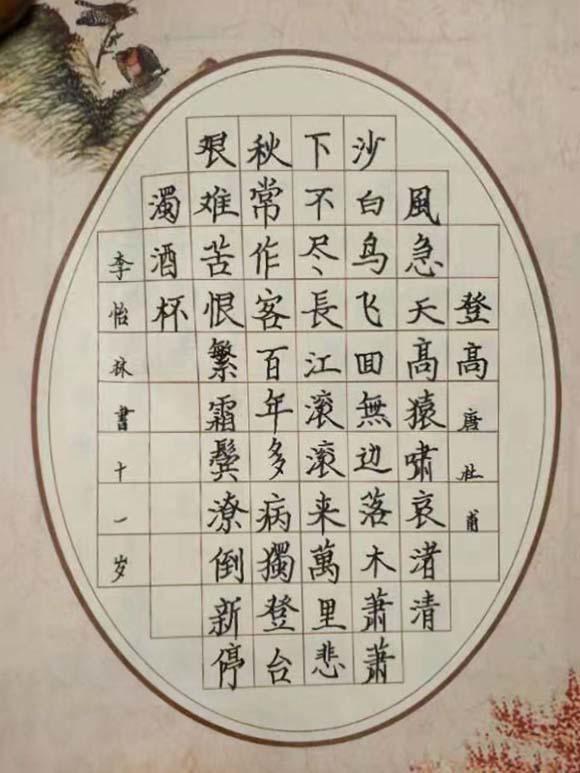 登高 唐 杜甫
風急天髙猿嘯哀渚清
沙白鸟飞回無边落木蕭蕭
下不尽長江滚滚来萬里悲
秋常作客百年多病獨登台
艰难苦恨繁霜鬓潦倒新停
濁酒杯
李怡書十一岁